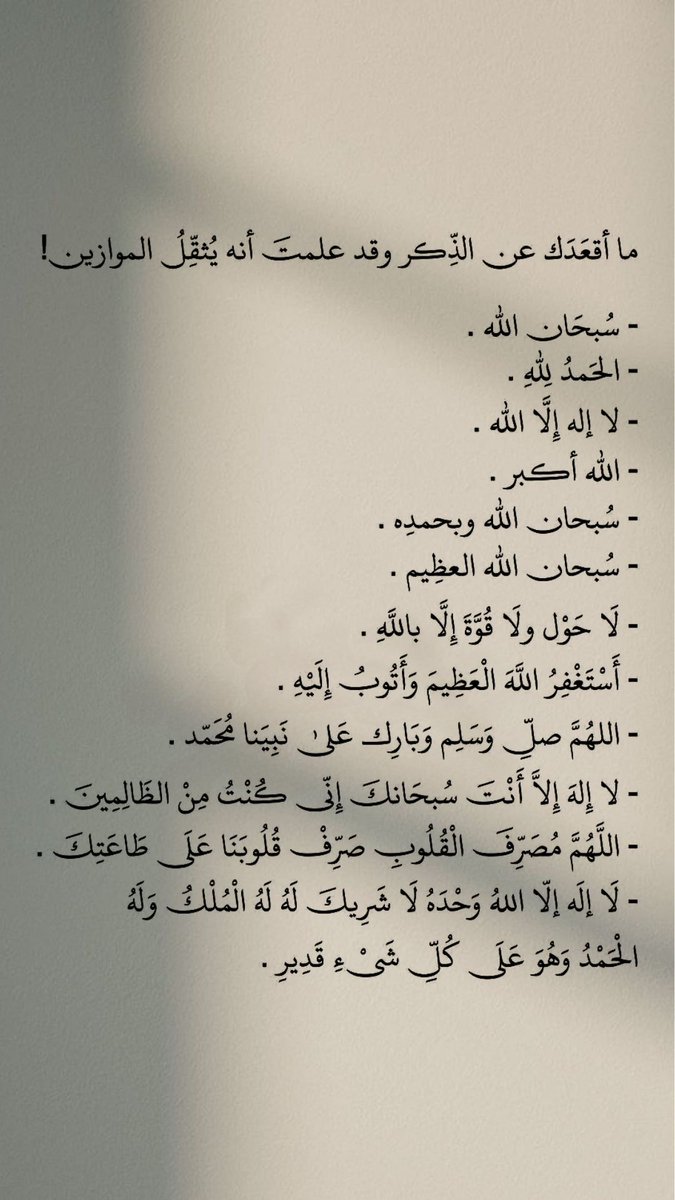 ما أقعَدَك عن الذِّكر وقد علمتَ أنه يُثقِّلُ الموازين!
- سُبحَان الله .
- الحَمدُ لِلّهِ .
- لا إله إِلَّا الله .
- الله أكبر .
- سُبحان الله وبحمدِه .
- سُبحان الله العظِيم .
- لَا حَوْل ولَا قُوَّةَ إِلَّا باللَّهِ .
- أَسْتَغْفِرُ اللَّهَ الْعَظِيمَ وَأَتُوبُ إِلَيْهِ .
- اللهُمَّ صلِّ وَسَلِم وَبَارِك عَلىٰ نَبِيَنا مُحَمّد .
- لا إِلهَ إِلاَّ أَنْتَ سُبحَانكَ إِنّى كُنْتُ مِنْ الظَالِمِينَ .
- اللَّهُمَّ مُصَرِّفَ الْقُلُوبِ صَرِّفْ قُلُوبَنَا عَلَى طَاعَتِكَ .
- لَا إلَه إلّا اللهُ وَحْدَهُ لَا شَرِيكَ لَهُ لَهُ الْمُلْكُ وَلَهُ
الْحَمْدُ وَهُوَ عَلَى كُلِّ شَىْءِ قَدِيرِ .